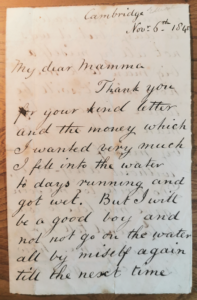 Cambridge
Nov. 6th 184
My dear Mamma
Thank you
for your kind letter
and the money which
I wanted very much
I fell into the water
to days running and
got wet. But I will
be a good boy and
not not go on the water
all by miself again
till the next time